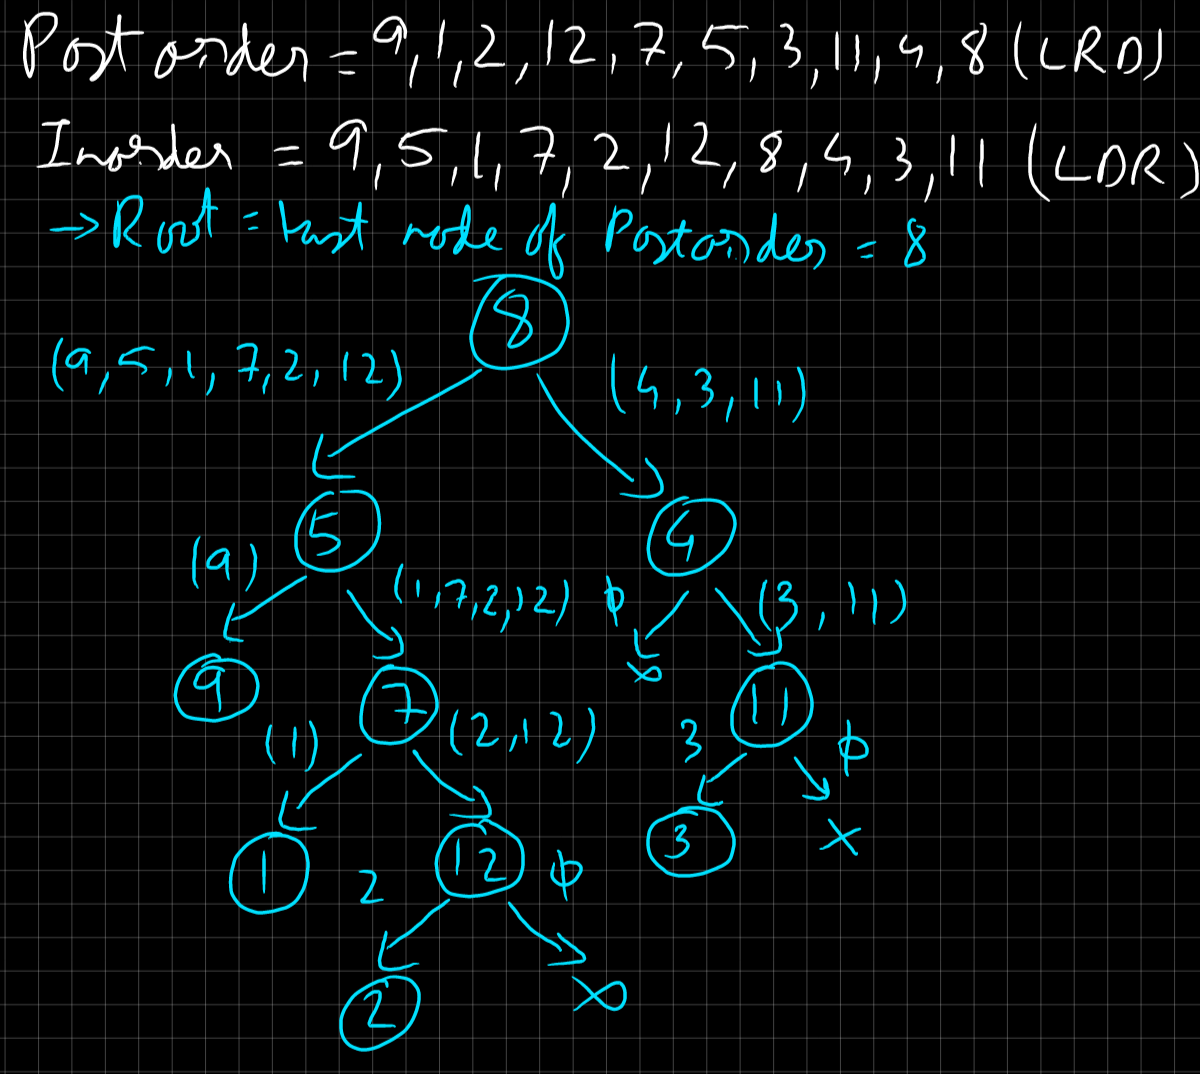 Postorder = 9,1,2,12,7,5,3,11,4,8 (LRD)
Inorder = 9,5,1,7,2,12,8,4,3,11 (LDR)
→ Root = Last node of Postorder = 8
8
(9,5,1,7,2,12) (4,3,11)
5 4
(9) (1,7,2,12) ϕ (3,11)
9 7 x 11
(1) (2,12) 3 ϕ
1 12 3 x
2 ϕ
2 x